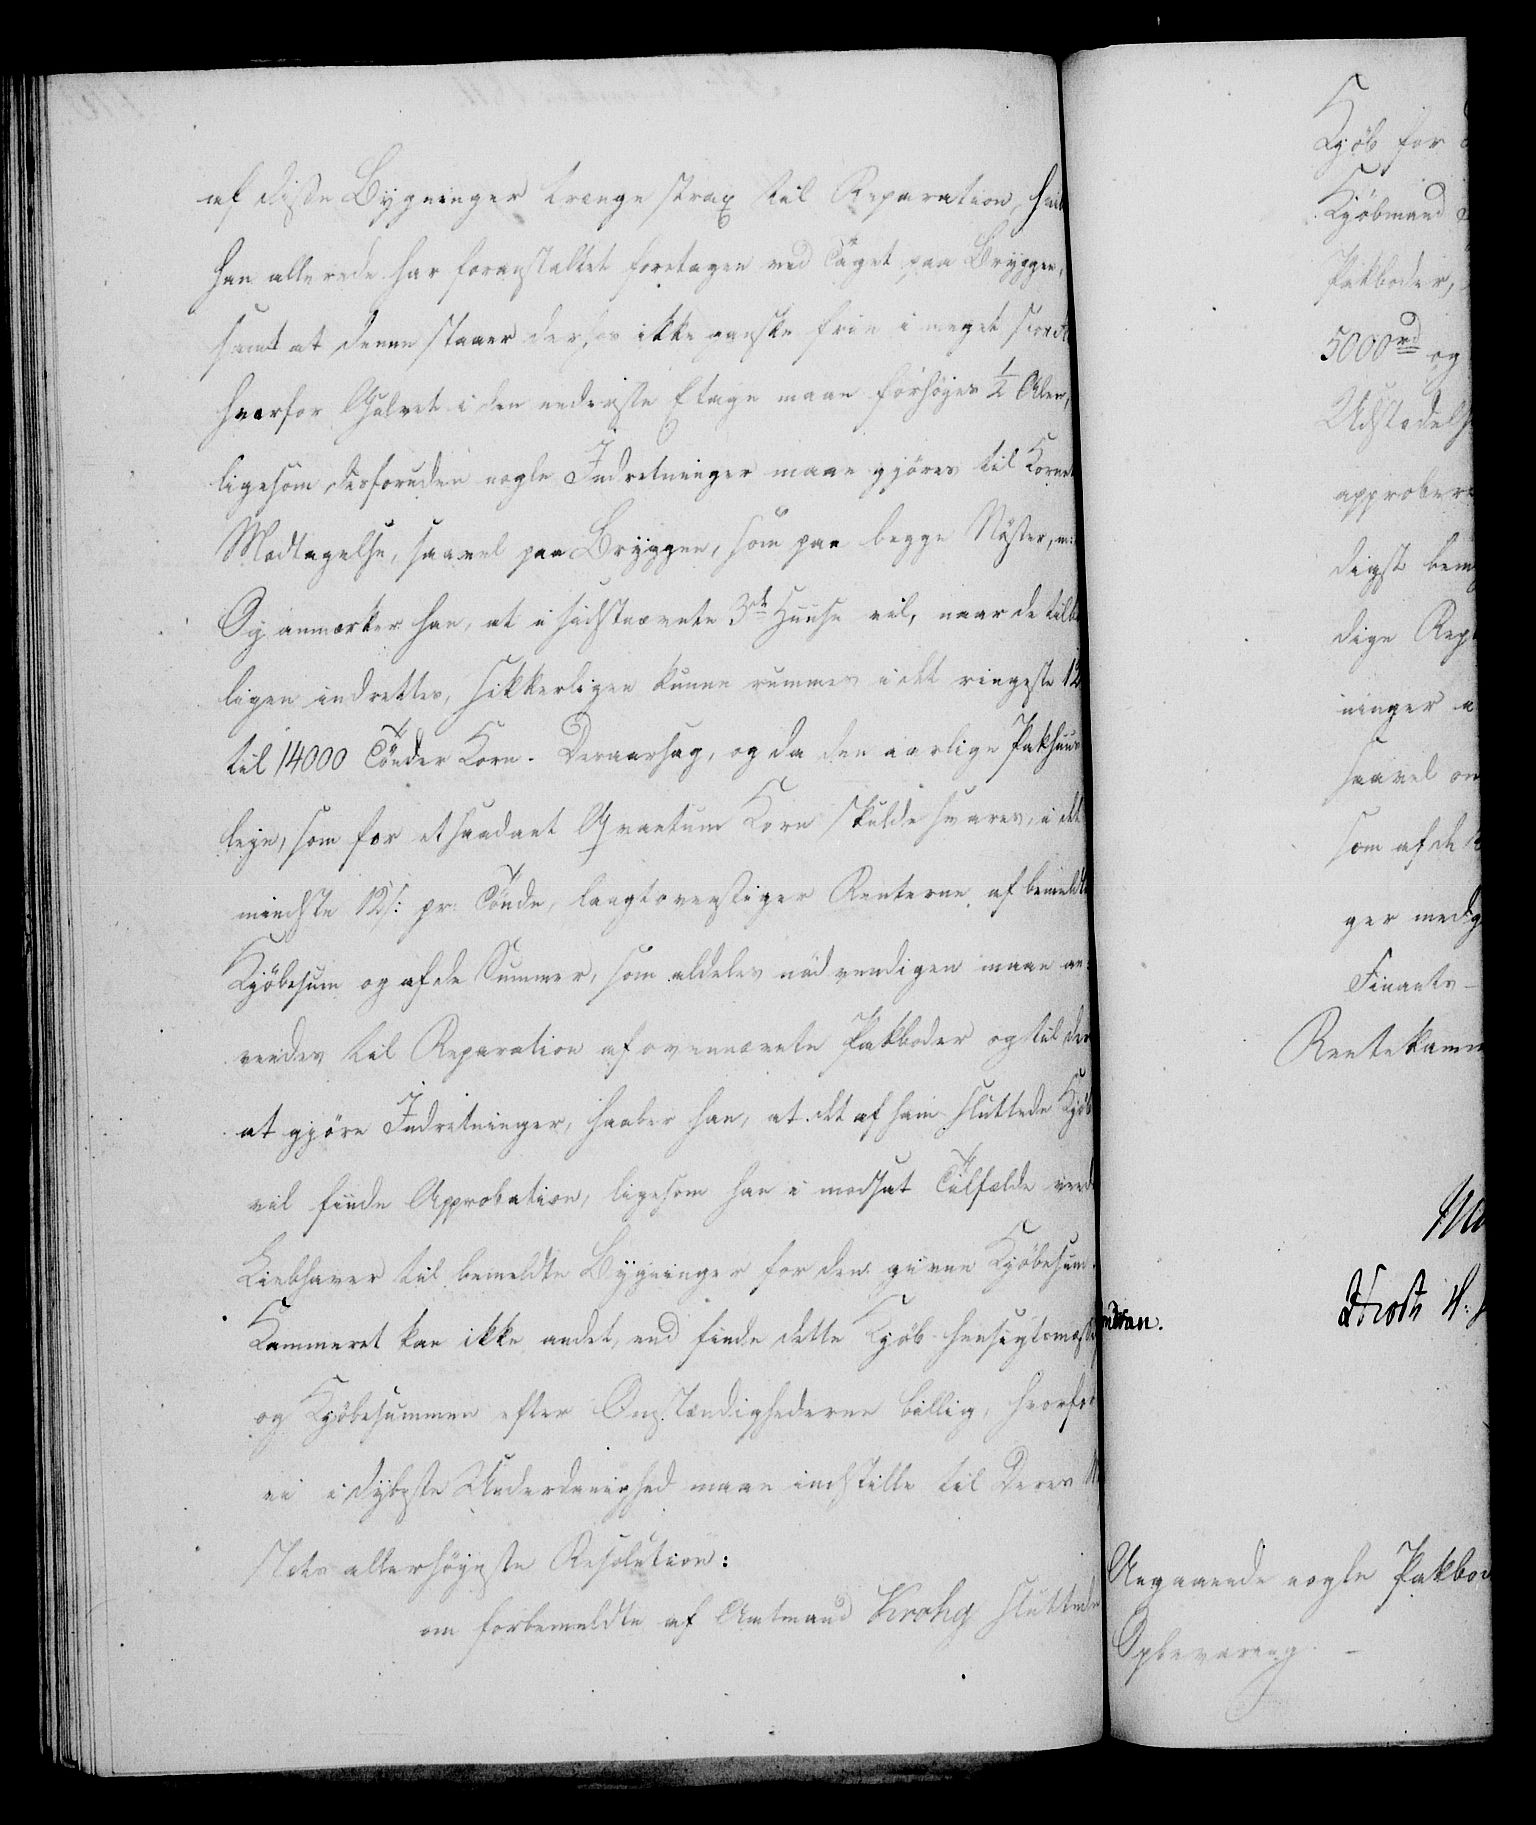 af disse Bygninger trænge strax til Reparation,
han allerede har foranstaltet foretagen ved Taget paa Bryggen,
samt at denne staaer derhos ikke ganske frie i meget
hvorfor Gulvet i den nederste Etage maae forhøyes ½ Alen,
ligesom desforuden nogle Indretninger maae gjøres til Kornets
Modtagelse, saavel paa Bryggen, som paa begge Nøster, m:
Og anmærker han, at i sidstnævnte 3de Huuse vil, naar de
ligen indrettes, sikkerligen kunne rummes i det ringeste 12
til 14000 Tönder Korn. Deraarsag, og da den aarlige Pakhuus
leye, som for et saadant Qvantum Korn skulde svares, i det
mindste 12 s: pr: Tönde, langt overstiger Renterne af bemeldte
Kjöbesum og af de Summer, som aldeles nödvendigen maae an-
vendes til Reparation af ovennævnte Pakboder og til der
at gjöre Indretninger, haaber han, at det af ham sluttede Kjöb
vil finde Approbation, ligesom han i modsat Tilfælde veed
Liebhaver til bemeldte Bygninger for den givne Kjöbesum.
Kammeret kan ikke andet, end finde dette Kjöb hensigtsmæssig
og Kjöbesummen efter Omstændighederne billig, hvorfor
vi i dybeste Underdanighed maae indstille til Deres
stæts allerhöyeste Resolution:
om forbemeldte af Amtmand Krohg sluttede
Kjöb for
Kjöbmand
Pakboder,
5000 rd og
Udstedels
approber
digst bem
dige Rep
ninger
saavel om
som af de
ger med
Finants-
Rentekamm
Angaaende nogle Pakbod
Opbevaring. -